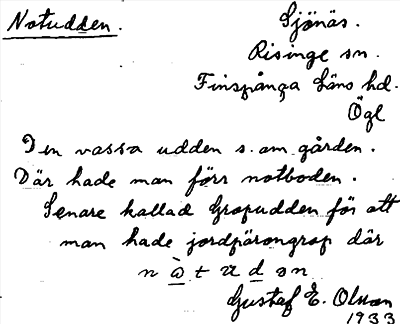 Notudden.
Sjönäs.
Risinge sn.
Finspånga läns hd.
Ögl
Den vassa udden s. om gården.
Där hade man förr notboden.
Senare kallad Gropudden för att
man hade jordpärongrop där
n ὼ t ꭒ d ən
Gustaf E. Olsson
1933